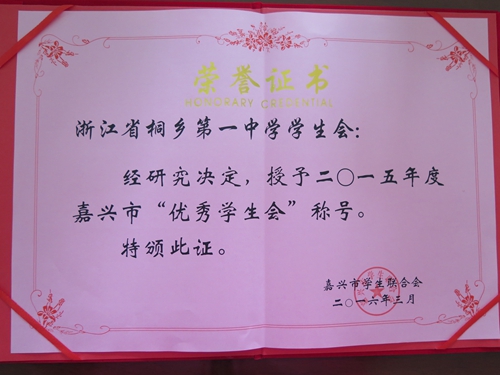 荣誉证书
HONORARY CREDENTIAL
浙江省桐乡第一中学学生会：
经研究决定，授予二〇一五年度
嘉兴市“优秀学生会”称号。
特颁此证。
嘉兴市学生联合会
二〇一六年三月